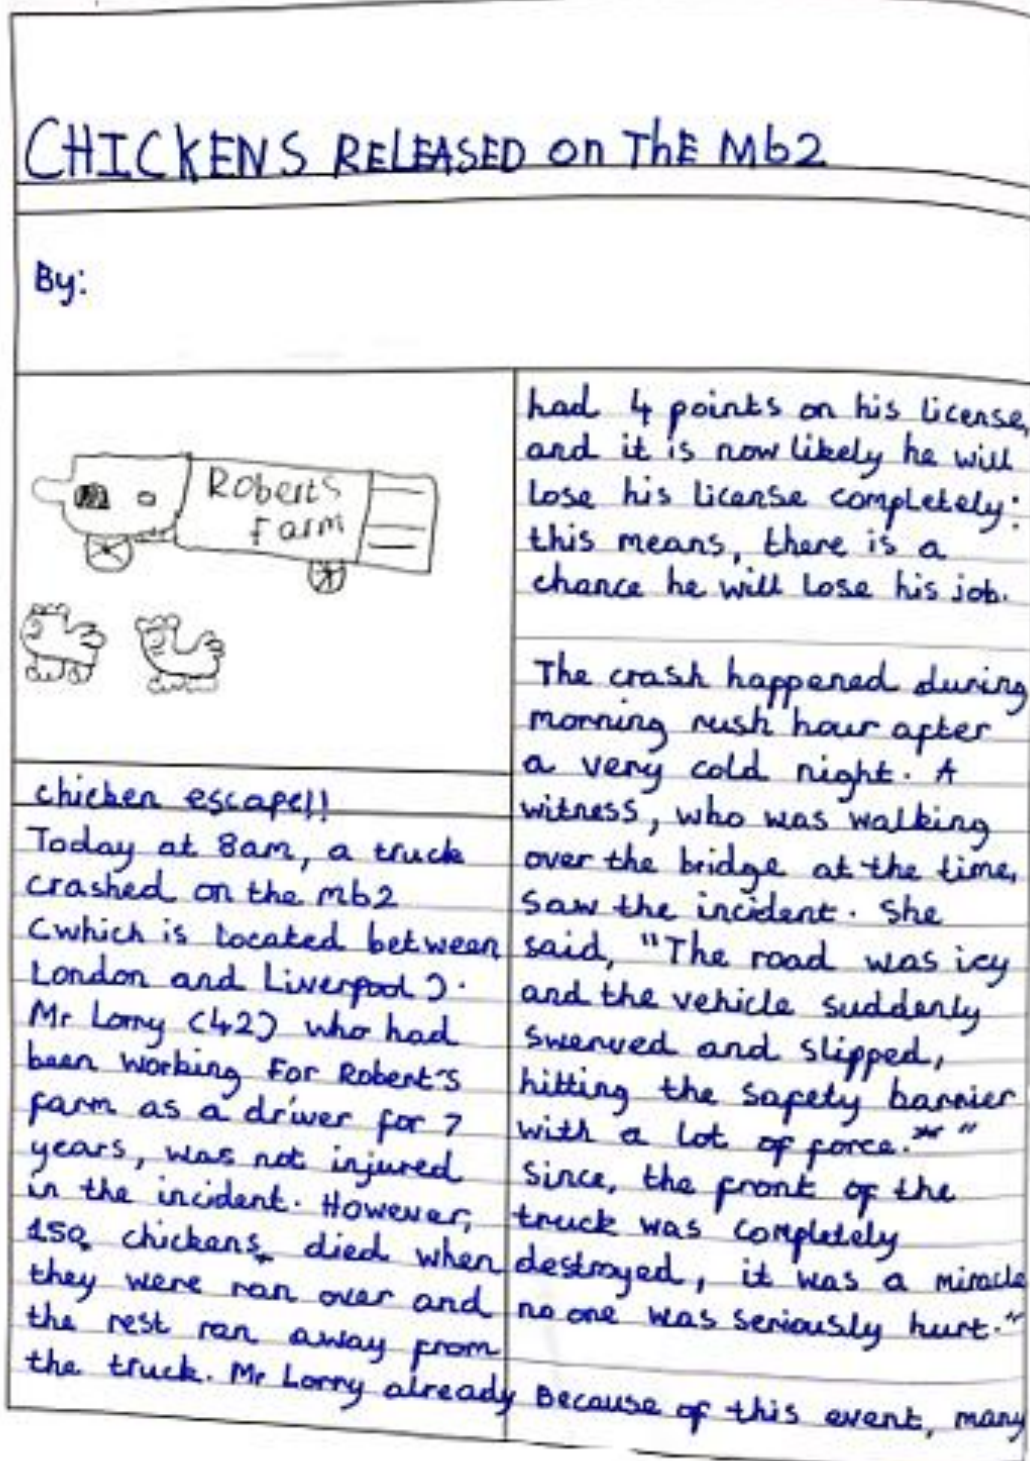 CHICKENS RELEASED on ThE M62
By:
Roberts
farm
chicken escape!!
Today at 8am, a truck
crashed on the M62
(which is located between
London and Liverpool).
Mr Lorry (42) who had
been working For Robert's
farm as a driver for 7
years, was not injured
in the incident. However,
150 chickens died when
they were ran over and
the rest ran away from
the truck. Mr Lorry already
had 4 points on his license,
and it is now likely he will
lose his license completely:
this means, there is a
chance he will lose his job.
The crash happened during
morning rush hour after
a very cold night. A
witness, who was walking
over the bridge at the time,
saw the incident. She
said, "The road was icy
and the vehicle suddenly
swerved and slipped,
hitting the safety barrier
with a lot of force."
Since, the front of the
truck was completely
destroyed, it was a miracle
no one was seriously hurt."
Because of this event, many